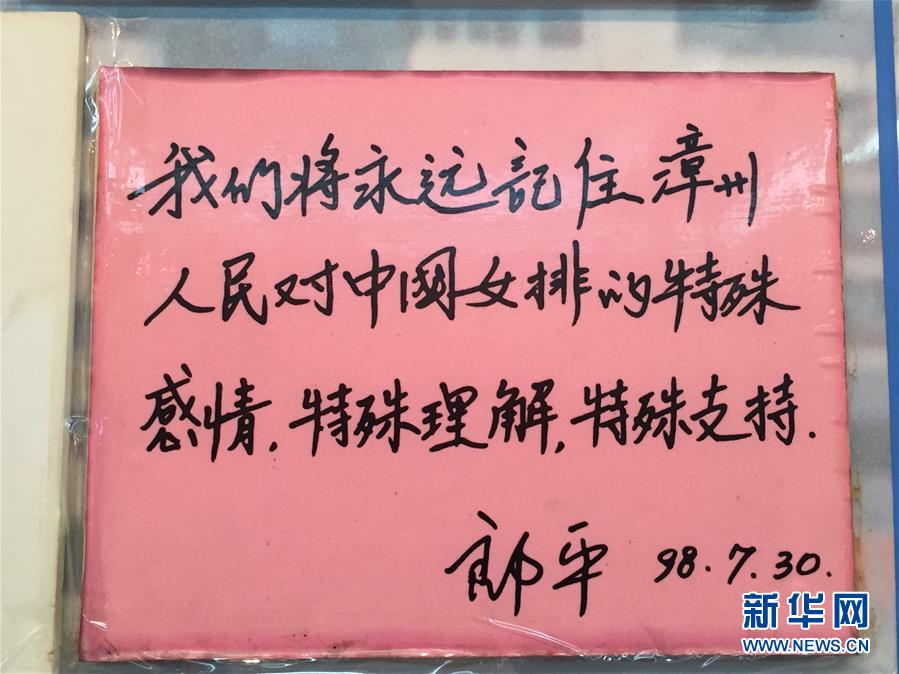 我们将永远記住漳州
人民对中國女排的特殊
感情.特殊理解,特殊支持.
郎平 98.7.30.
新华网
WWW.NEWS.CN